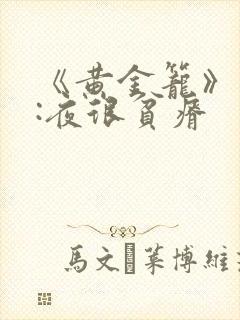 《黄金籠》
:夜很貧瘠
馬文·萊博維